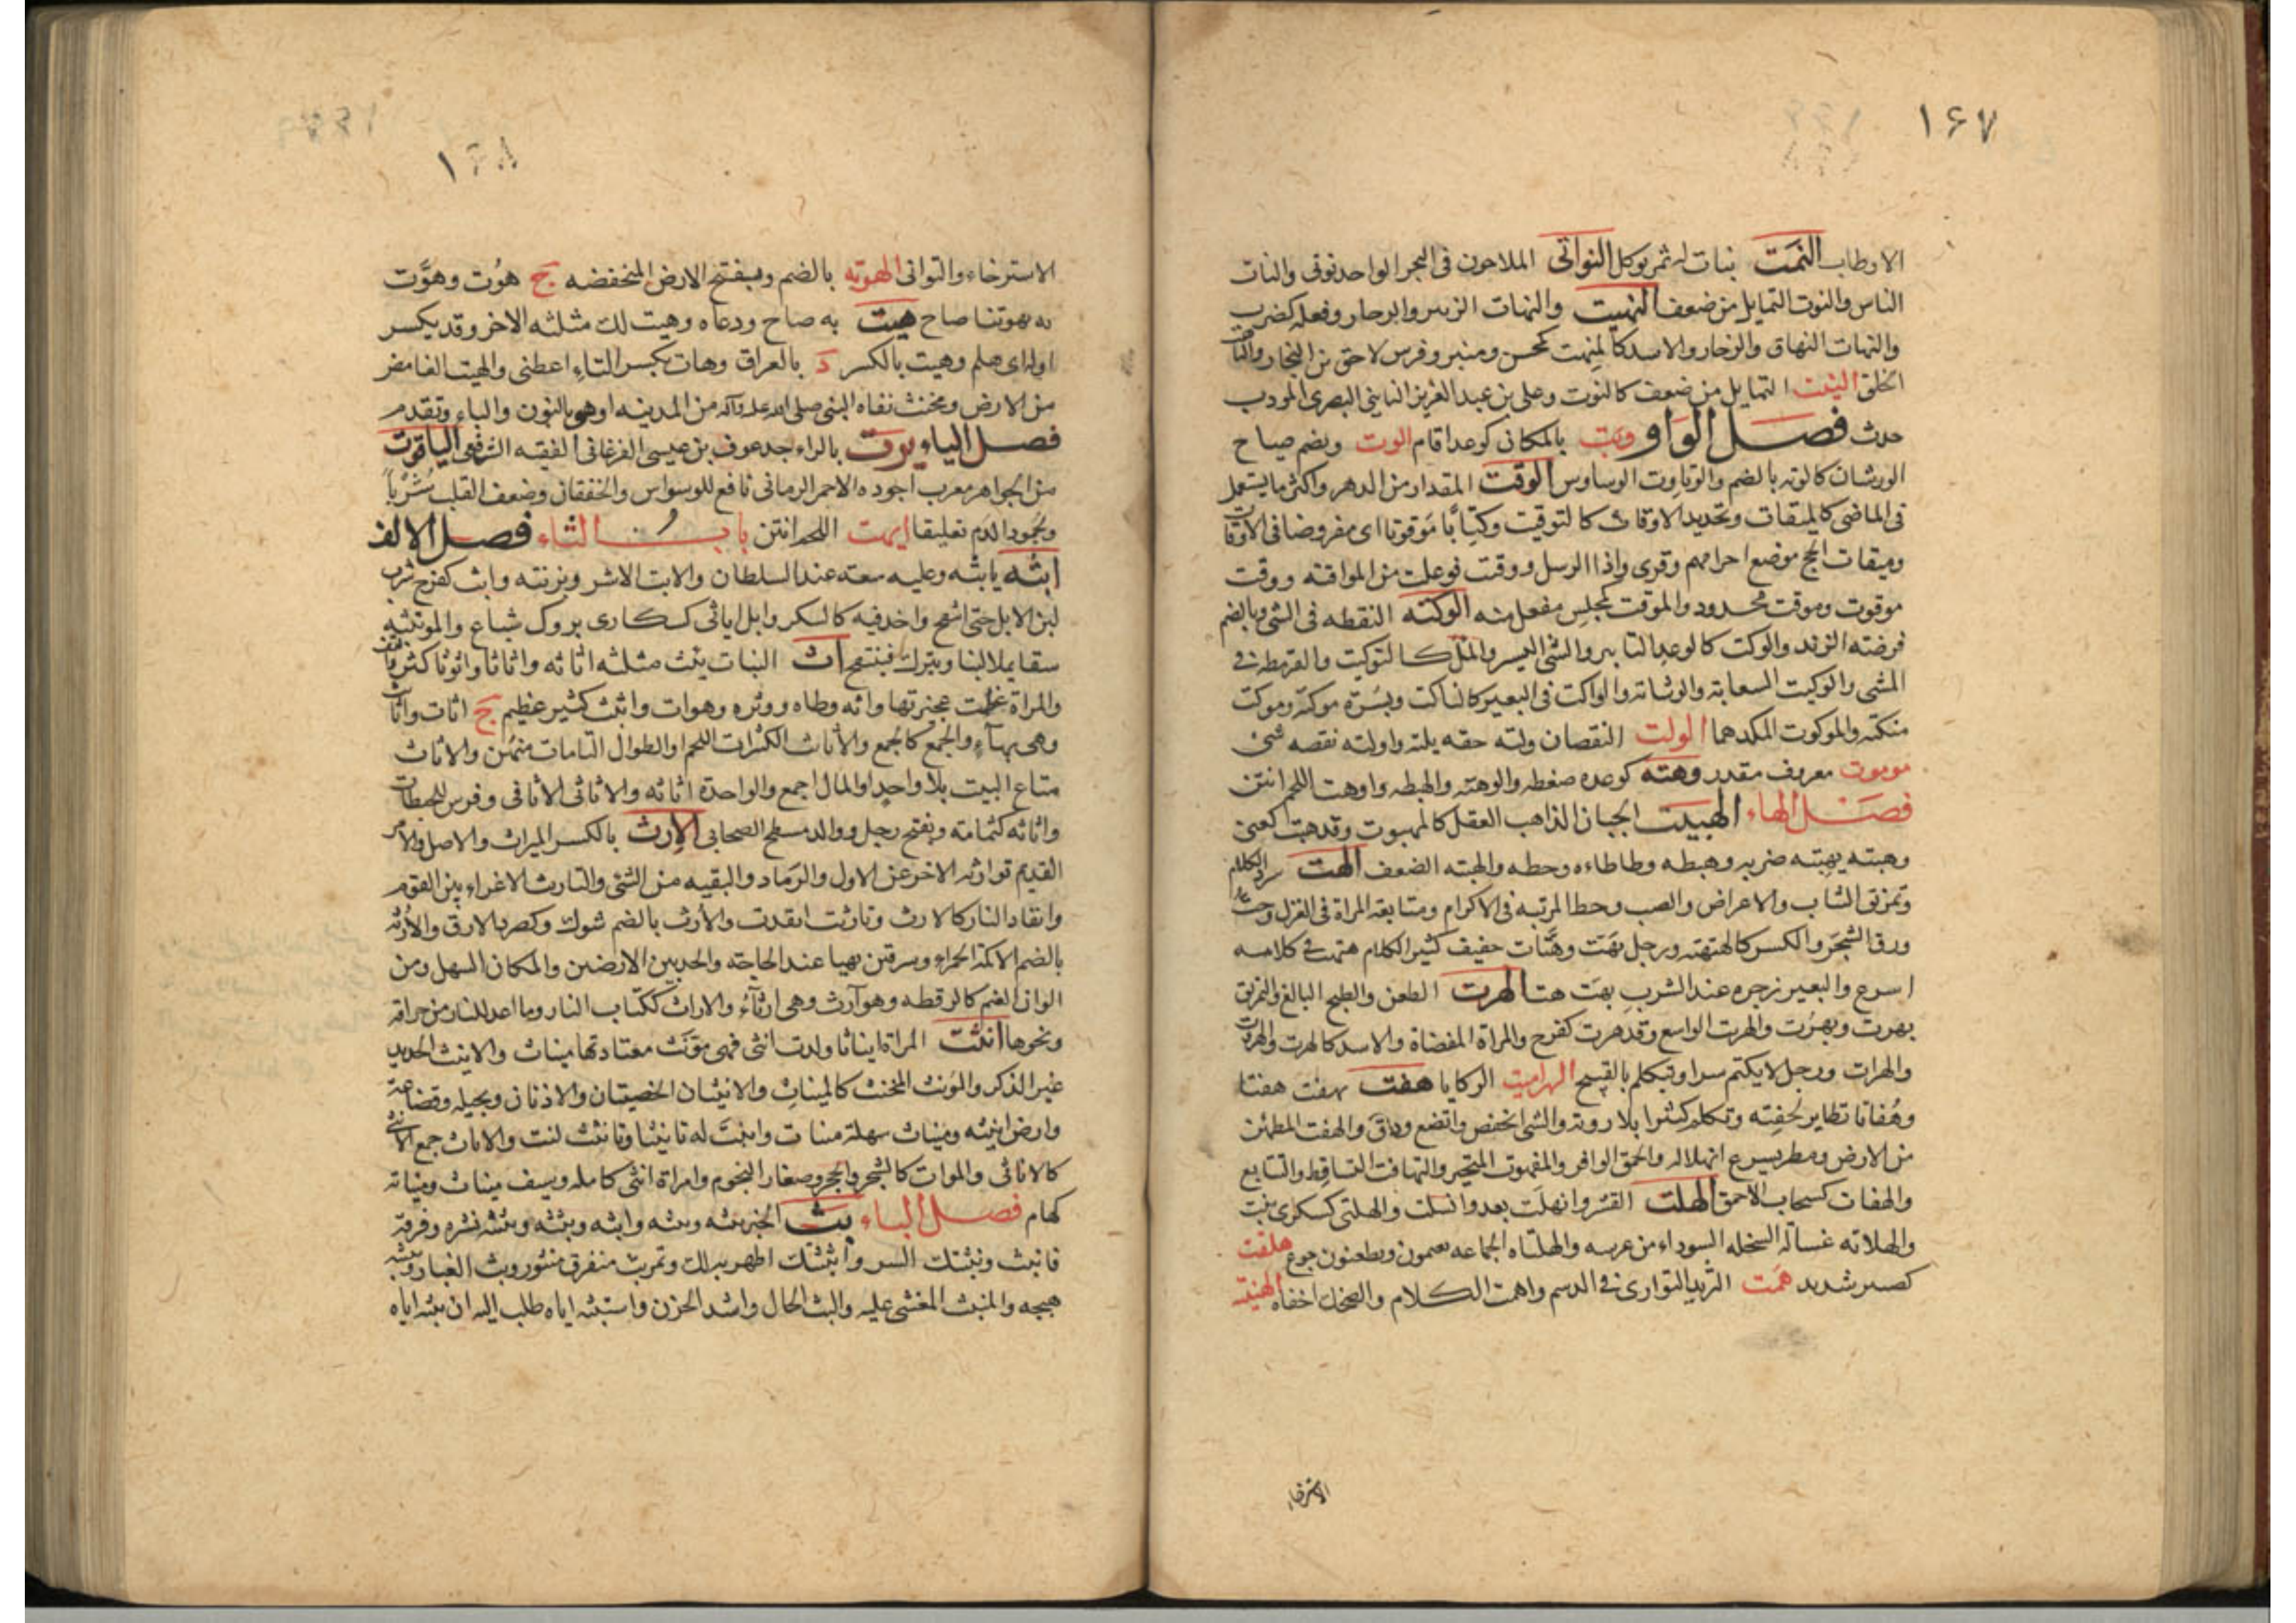 ۱۶۷
الاوطاب النمت نبات له ثمر يوكل النواتى الملاحون فى البحر الواحد نوتى والنات
الناس والنوت التمايل من ضعف النهيت والنهات الزيىر والزحار وفعله كضرب
والنهات النهاق والزحار والاسد كالمنهت كمحسن ومنبر وفرس لاحق بن النجار
الخلق النيت التمايل من ضعف كالنوت وعلى بن عبد العزيز النايتى البصرى المودب
حدث فصل الواو وبت بالمكان كوعد اقام الوت ويضم صياح
الورشان كالوته بالضم والوتاوت الوساوس الوقت المقدار من الدهر واكثر ما يستعمل
فى الماضى كالميقات وتحديد الاوقات كالتوقيت وكتابا موقوتا اى مفروضا فى الاوقات
وميقات الحج موضع احرامهم وقرى واذا الرسل ووقتت فوعلت من المواقته ووقت
موقوت وموقت محدود والموقت كمجلس مفعل منه الوكته النقطه فى الشى وبالضم
فرضته الزند والوكت كالوعد التاثير والشى اليسير والملأ كالتوكيت والقرمطه فى
المشى والوكيت السعايه والوشايه والواكت فى البعير كالناكت وبسرة موكته وموكت
منكته والموكوت المكد هما الولت النقصان ولته حقه يلته واولته نقصه شى
موبوت معروف مقدر وهته كوعده ضغطه والوهته والهبطه واوهت اللحم انتن
فصل الهاء الهبيت الجبان الذاهب العقل كالمهبوت وقد هبت كعنى
وهبته يهبته ضربه وهبطه وطاطاءه وحطه والهبته الضعف الهت سرد الكلام
وتمزيق الثياب والاعراض والصب وحط المرتبه فى الاكرام ومتابعه المراة فى الغزل وحت
ورق الشجر والكسر كالهتهته ورجل مهت وهتات خفيف كثير الكلام هتهت فى كلامه
اسرع والبعير زجره عند الشرب بهت هت الهرت الطعن والطبخ البالغ والتمزيق
يهرت ويهرت والهرت الواسع وقد هرت كفرح والمراة المفضاة والاسد كالهرت والهروت
والهرات ورجل لا يكتم سرا ويتكلم بالقبيح الهراميت الركايا هفت يهفت هفتا
وهفاتا تطاير لخفته وتكلم كثيرا بلا روية والشى انخفض واتضع ودق والهفت المطمئن
من الارض ومطر يسرع انهلاله والحمق الوافر والمفهوت المتحير والتهافت التساقط والتتابع
والهفات كسحاب الاحمق الهلت القشر وانهلت يعدو انسلت والهلتى كسكرى نبت
والهلاته غسالة السخله السوداء من غرسه والهلتاه الجماعه يقيمون ويظعنون جوع هلقت
كصبر شديد همت الثريد التوارى فى الدسم واهمت الكلام والضحك اخفاه الهنيته
الاسترخاء
۱۶۸
الاسترخاء والتوانى الهوته بالضم ويفتح الارض المنخفضه ج هوت وهوت
به تهوتيا صاح هيت به صاح ودعاه وهيت لك مثلثه الاخر وقد يكسر
اوله اى هلم وهيت بالكسر د بالعراق وهات بكسر التاء اعطنى والهيت الغامض
من الارض ومخنث نفاه النبى صلى الله عليه وآله من المدينه او هو بالنون والباء وتقدم
فصل الياء يروت بالراء جد عوف بن عيسى الفرغانى الفقيه الشرفى الياقوت
من الجواهر معرب اجوده الاحمر الرمانى نافع للوسواس والخفقان وضعف القلب شربا
ولجمود الدم تعليقا ايهت اللحم انتن باب الثاء فصل الالف
ابثه يابثه وعليه سبعه عند السلطان والابث الاشر وبزنته وابث كفرح شرب
لبن الابل حتى انتفخ واخذ فيه كالسكر وابل اباثى كسكارى بروك شباع والموتثبه
سقا يملا لبنا ويترك فينتفخ اث النبات يئث مثلثه اثاثه واثاثا واثوثا كثر والتف
والمراة عظمت عجيزتها واثه وطاه ووثره وهو اث واثيث كثير عظيم ج اثاث واثائث
وهى بهاء والجمع كالجمع والاثائث الكثيرات اللحم او الطوال التامات منهن والاثاث
متاع البيت بلا واحد او المال اجمع والواحدة اثاثه والاثاثى الاثافى وفرس للحبطات
واثاثه كثمامته ويفتح رجل ووالد مسطح الصحابى الارث بالكسر الميراث والاصل والامر
القديم توارثه الاخر عن الاول والرماد والبقيه من الشى والتاريث الاغراء بين القوم
وايقاد النار كالارث وتارثت اتقدت والارث بالضم شوك وكصرد الارف والارثه
بالضم الاكمة الحمراء وسرقين يهيا عند الحاجة والحد بين الارضين والمكان السهل ومن
الوان الغنم كالرقطه وهو آرث وهى ارثاء والاراث ككتاب النار وما اعد للنار من حراقة
ونحوها انثت المراة ايناثا ولدت انثى فهى مونث معتادتها ميناث والانيث الحديد
غير الذكر والمونث المخنث كالميناث والانثيان الخصيتان والاذنان وبجيله وقضاعة
وارض انيثه وميناث سهلة منبات وانثت له تانيثا وتانثت لنت والاناث جمع الانثى
كالاناثى والموات كالشجر والحجر وصغار النجوم وامراة انثى كامله وسيف ميناث وميناثه
كهام فصل الباء بث الخبر يبثه ويبثه وابثه وبثثه وبثبثه نشره وفرقه
فانبث وبثثتك السر وابثثتك اظهرته لك وتمر بث متفرق منثور وبث الغبار وبثبثه
هيجه والمنبث المغشى عليه والبث الحال واشد الحزن واستبثه اياه طلب اليه ان يبثه اياه